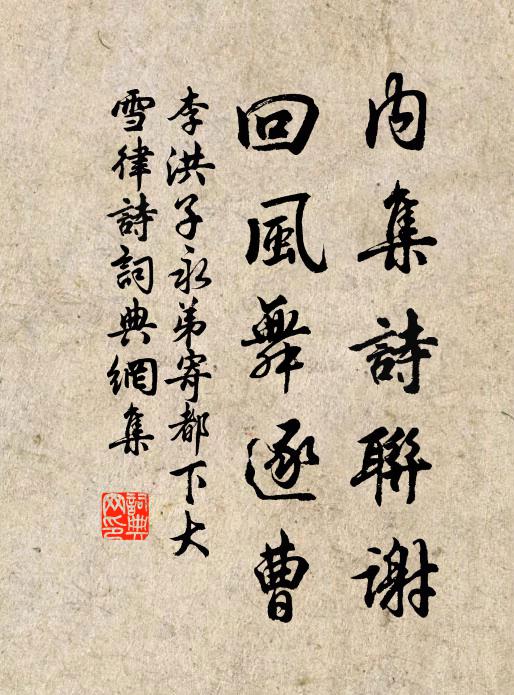 内集詩聯謝
回風舞逐曹
李洪子永弟寄都下大
雪律詩詞典網集
詞典网印